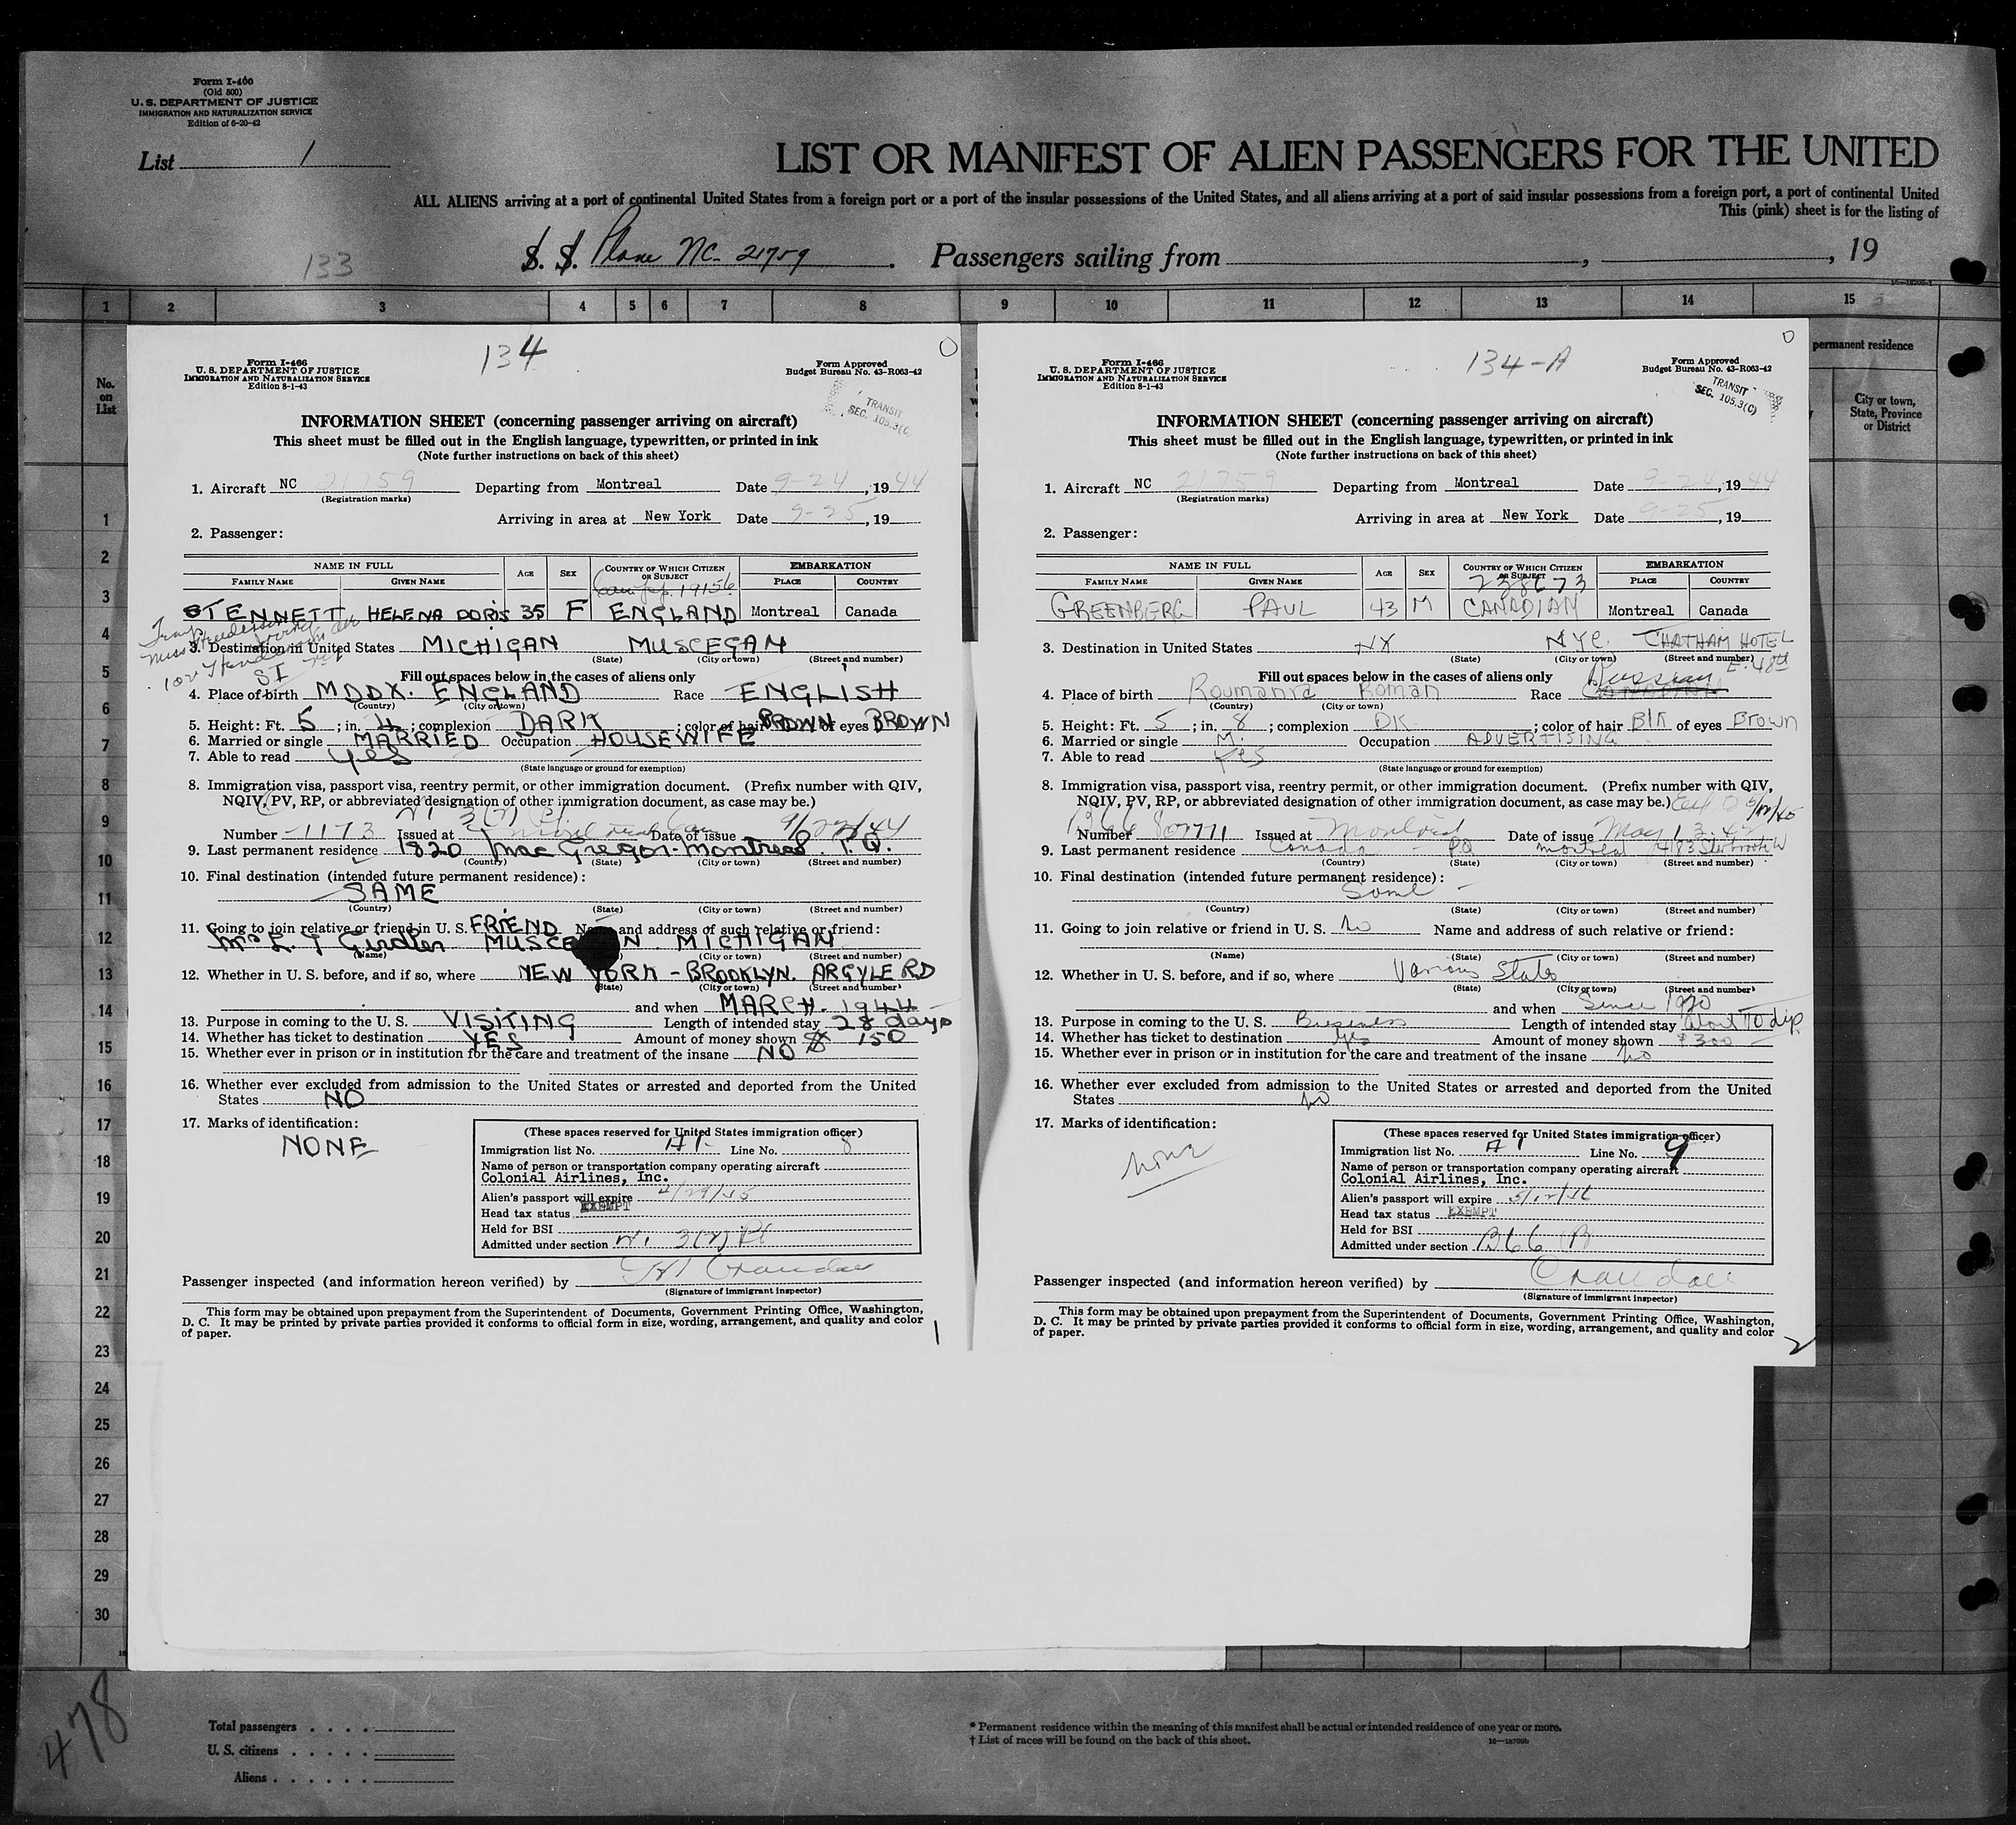 Form I-400
(Old 500)
U. S. DEPARTMENT OF JUSTICE
IMMIGRATION AND NATURALIZATION SERVICE
Edition of 6-20-42
List 1
LIST OR MANIFEST OF ALIEN PASSENGERS FOR THE UNITED
ALL ALIENS arriving at a port of continental United States from a foreign port or a port of the insular possessions of the United States, and all aliens arriving at a port of said insular possessions from a foreign port, a port of continental United
This (pink) sheet is for the listing of
133
S. S. Plane NC- 21759 . Passengers sailing from , , 19
1 2 3 4 5 6 7 8 9 10 11 12 13 14 15
No. on List
permanent residence
City or town, State, Province or District
1
2
3
4
5
6
7
8
9
10
11
12
13
14
15
16
17
18
19
20
21
22
23
24
25
26
27
28
29
30
134
Form I-466
U. S. DEPARTMENT OF JUSTICE
IMMIGRATION AND NATURALIZATION SERVICE
Edition 8-1-43
Form Approved
Budget Bureau No. 43-R063-42
TRANSIT
SEC. 105.3(C)
INFORMATION SHEET (concerning passenger arriving on aircraft)
This sheet must be filled out in the English language, typewritten, or printed in ink
(Note further instructions on back of this sheet)
1. Aircraft NC 21759 Departing from Montreal Date 9-24, 1944
(Registration marks)
Arriving in area at New York Date 9-25, 19
2. Passenger:
NAME IN FULL AGE SEX COUNTRY OF WHICH CITIZEN OR SUBJECT EMBARKATION
FAMILY NAME GIVEN NAME PLACE COUNTRY
19156
STENNETT HELENA DORIS 35 F ENGLAND Montreal Canada
3. Destination in United States MICHIGAN MUSCEGAN
(State) (City or town) (Street and number)
Fill out spaces below in the cases of aliens only
4. Place of birth MDDX. ENGLAND Race ENGLISH
(Country) (City or town)
5. Height: Ft. 5 ; in. 4 ; complexion DARK ; color of hair BROWN of eyes BROWN
6. Married or single MARRIED Occupation HOUSEWIFE
7. Able to read yes
(State language or ground for exemption)
8. Immigration visa, passport visa, reentry permit, or other immigration document. (Prefix number with QIV,
NQIV, PV, RP, or abbreviated designation of other immigration document, as case may be.)
Number 1173 Issued at Date of issue 9/22/44
9. Last permanent residence 1820 Mac Gregor-Montreal P.Q.
(Country) (State) (City or town) (Street and number)
10. Final destination (intended future permanent residence):
SAME
(Country) (State) (City or town) (Street and number)
11. Going to join relative or friend in U. S. FRIEND Name and address of such relative or friend:
Mrs L. J Girdler MUSCE N. MICHIGAN
(Name) (City or town) (Street and number)
12. Whether in U. S. before, and if so, where NEW YORK - BROOKLYN. ARGYLE RD
(State) (City or town) (Street and number)
and when MARCH. 1944
13. Purpose in coming to the U. S. VISITING Length of intended stay 28 days
14. Whether has ticket to destination YES Amount of money shown $ 150
15. Whether ever in prison or in institution for the care and treatment of the insane NO
16. Whether ever excluded from admission to the United States or arrested and deported from the United
States NO
17. Marks of identification:
NONE
(These spaces reserved for United States immigration officer)
Immigration list No. A1 Line No. 8
Name of person or transportation company operating aircraft
Colonial Airlines, Inc.
Alien's passport will expire
Head tax status EXEMPT
Held for BSI
Admitted under section
Passenger inspected (and information hereon verified) by
(Signature of Immigrant Inspector)
This form may be obtained upon prepayment from the Superintendent of Documents, Government Printing Office, Washington,
D. C. It may be printed by private parties provided it conforms to official form in size, wording, arrangement, and quality and color
of paper.
1
134-A
Form I-466
U. S. DEPARTMENT OF JUSTICE
IMMIGRATION AND NATURALIZATION SERVICE
Edition 8-1-43
Form Approved
Budget Bureau No. 43-R063-42
TRANSIT
SEC. 105.3(C)
INFORMATION SHEET (concerning passenger arriving on aircraft)
This sheet must be filled out in the English language, typewritten, or printed in ink
(Note further instructions on back of this sheet)
1. Aircraft NC 21759 Departing from Montreal Date 9-24, 1944
(Registration marks)
Arriving in area at New York Date 9-25, 19
2. Passenger:
NAME IN FULL AGE SEX COUNTRY OF WHICH CITIZEN OR SUBJECT EMBARKATION
FAMILY NAME GIVEN NAME PLACE COUNTRY
238673
GREENBERG PAUL 43 M CANADIAN Montreal Canada
3. Destination in United States NY NYC. CHATHAM HOTEL
(State) (City or town) (Street and number)
E. 48th
Fill out spaces below in the cases of aliens only
4. Place of birth Roumania Roman Race Russian
(Country) (City or town)
5. Height: Ft. 5 ; in. 8 ; complexion DK ; color of hair Blk of eyes Brown
6. Married or single M. Occupation ADVERTISING
7. Able to read Yes
(State language or ground for exemption)
8. Immigration visa, passport visa, reentry permit, or other immigration document. (Prefix number with QIV,
NQIV, PV, RP, or abbreviated designation of other immigration document, as case may be.)
Number Issued at Montreal Date of issue May
9. Last permanent residence Canada - PQ Montreal 4183 Sherbrook W
(Country) (State) (City or town) (Street and number)
10. Final destination (intended future permanent residence):
Same
(Country) (State) (City or town) (Street and number)
11. Going to join relative or friend in U. S. No Name and address of such relative or friend:
(Name) (State) (City or town) (Street and number)
12. Whether in U. S. before, and if so, where Various States
(State) (City or town) (Street and number)
and when Since 1920
13. Purpose in coming to the U. S. Business Length of intended stay About 10 dys
14. Whether has ticket to destination Yes Amount of money shown $300
15. Whether ever in prison or in institution for the care and treatment of the insane No
16. Whether ever excluded from admission to the United States or arrested and deported from the United
States No
17. Marks of identification:
None
(These spaces reserved for United States immigration officer)
Immigration list No. A1 Line No. 9
Name of person or transportation company operating aircraft
Colonial Airlines, Inc.
Alien's passport will expire
Head tax status EXEMPT
Held for BSI
Admitted under section B66
Passenger inspected (and information hereon verified) by Crandall
(Signature of Immigrant Inspector)
This form may be obtained upon prepayment from the Superintendent of Documents, Government Printing Office, Washington,
D. C. It may be printed by private parties provided it conforms to official form in size, wording, arrangement, and quality and color
of paper.
2
478
Total passengers
U. S. citizens
Aliens
* Permanent residence within the meaning of this manifest shall be actual or intended residence of one year or more.
† List of races will be found on the back of this sheet.